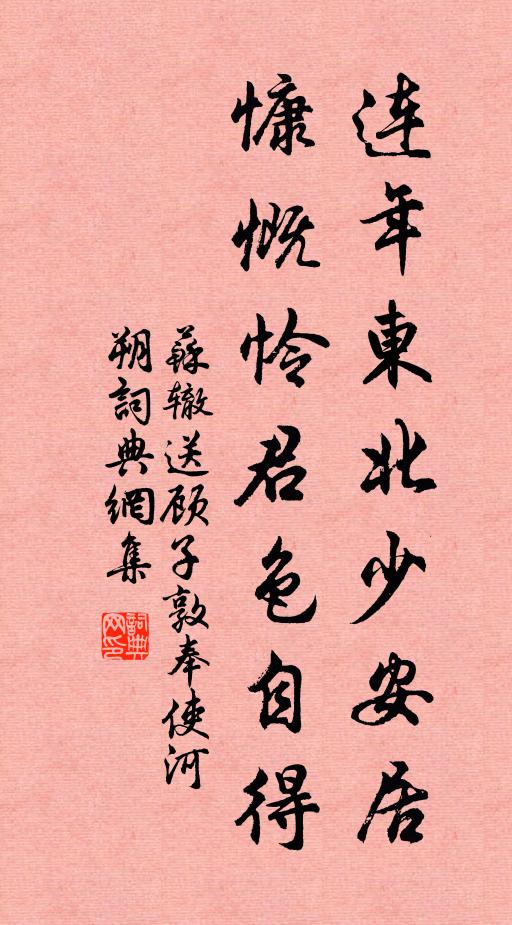 連年東北少安居
慷慨怜君色自得
蘇辙送顾子敦奉使河
朔詞典網集
詞典
网印